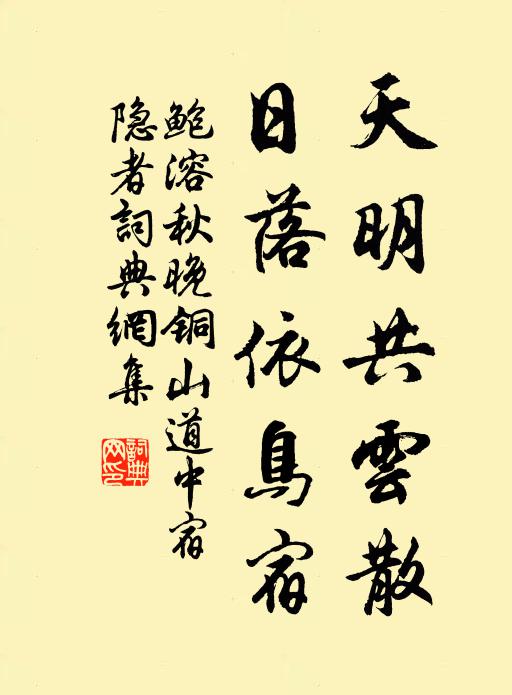 天明共雲散
日落依鳥宿
鲍溶秋晚铜山道中宿
隐者詞典網集
詞典
网印